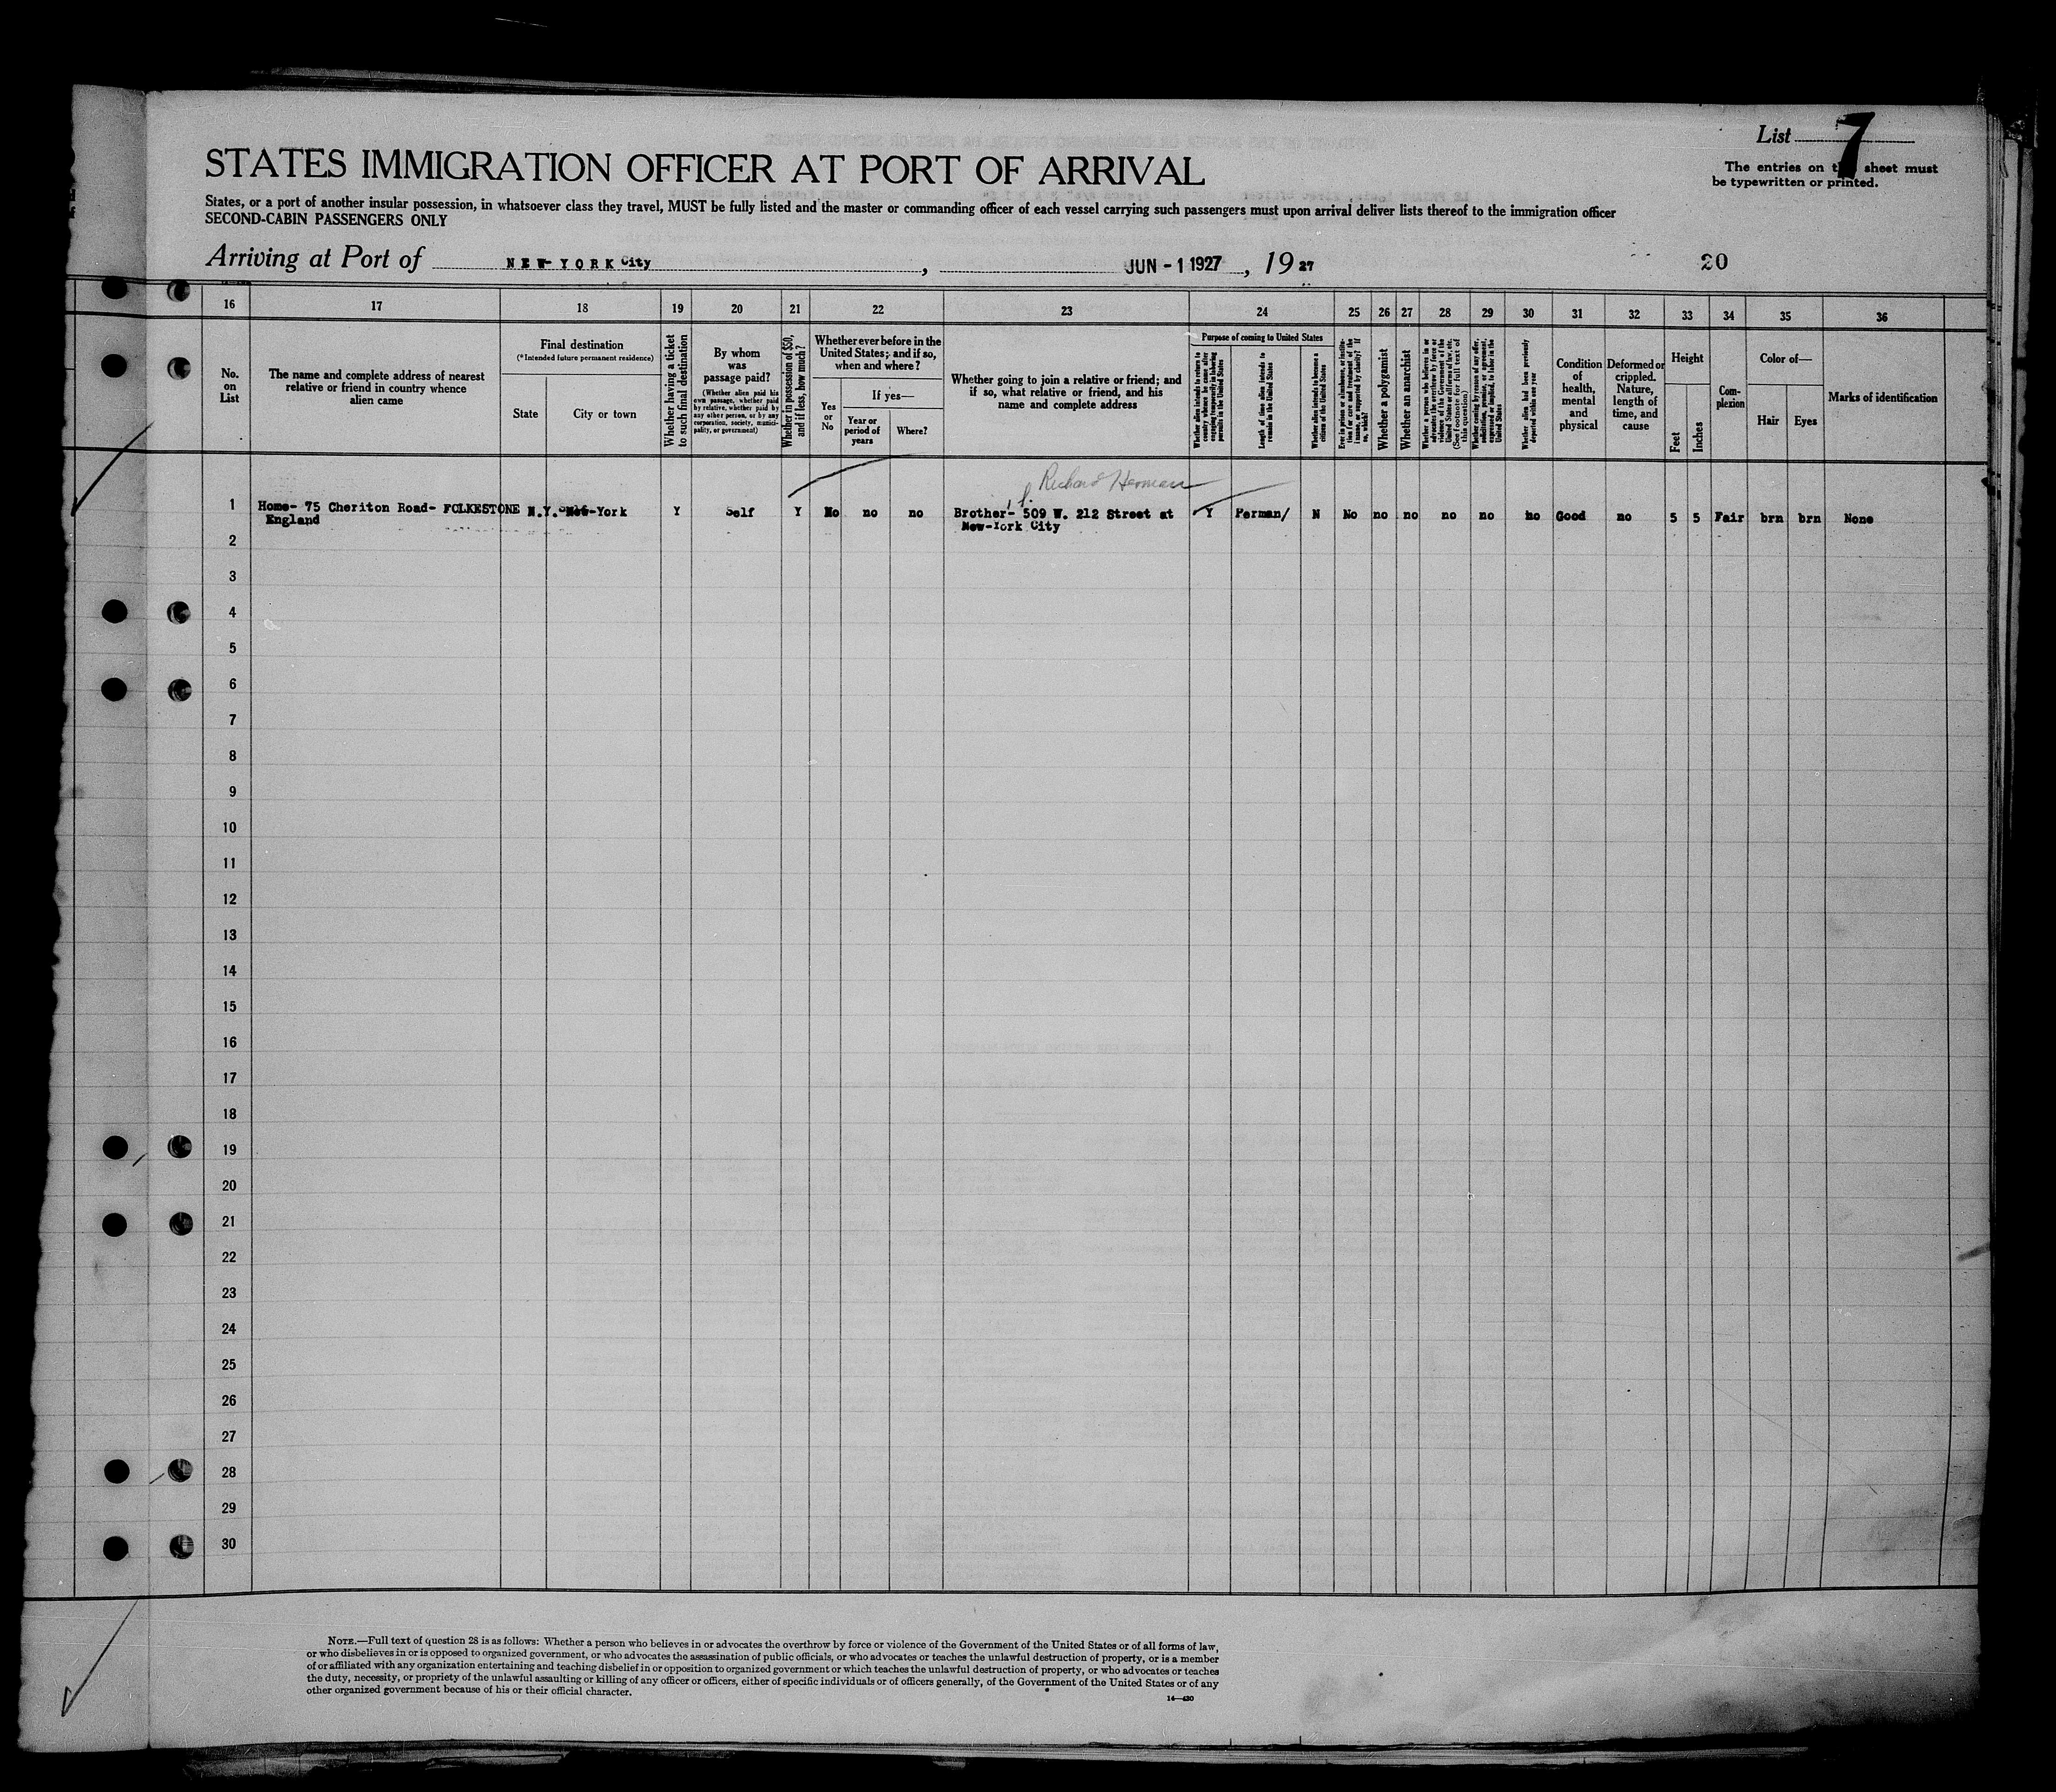 List 7
The entries on this sheet must
be typewritten or printed.
STATES IMMIGRATION OFFICER AT PORT OF ARRIVAL
States, or a port of another insular possession, in whatsoever class they travel, MUST be fully listed and the master or commanding officer of each vessel carrying such passengers must upon arrival deliver lists thereof to the immigration officer
SECOND-CABIN PASSENGERS ONLY
Arriving at Port of NEW-YORK City, JUN - 1 1927, 19 27
20
16 17 18 19 20 21 22 23 24 25 26 27 28 29 30 31 32 33 34 35 36
No.
on
List
The name and complete address of nearest
relative or friend in country whence
alien came
Final destination
(*Intended future permanent residence)
State
City or town
Whether having a ticket
to such final destination
By whom
was
passage paid?
(Whether alien paid his
own passage, whether paid
by relative, whether paid by
any other person, or by any
corporation, society, munici-
pality, or government)
Whether in possession of $50,
and if less, how much?
Whether ever before in the
United States; and if so,
when and where?
Yes
or
No
If yes—
Year or
period of
years
Where?
Whether going to join a relative or friend; and
if so, what relative or friend, and his
name and complete address
Purpose of coming to United States
Whether alien intends to return to
country whence he came after
engaging temporarily in laboring
pursuits in the United States
Length of time alien intends to
remain in the United States
Whether alien intends to become a
citizen of the United States
Ever in prison or almshouse, or institu-
tion for care and treatment of the
insane, or supported by charity? If
so, which?
Whether a polygamist
Whether an anarchist
Whether a person who believes in or
advocates the overthrow by force or
violence of the Government of the
United States or all forms of law, etc.
(See footnote for full text of
this question)
Whether coming by reason of any offer,
solicitation, promise, or agreement,
expressed or implied, to labor in the
United States
Whether alien had been previously
deported within one year
Condition
of
health,
mental
and
physical
Deformed or
crippled.
Nature,
length of
time, and
cause
Height
Feet
Inches
Com-
plexion
Color of—
Hair
Eyes
Marks of identification
Richard Herman
1 Home- 75 Cheriton Road- FOLKESTONE N.Y. New-York Y Self Y No no no Brother- 509 W. 212 Street at Y Perman/ N No no no no no no Good no 5 5 Fair brn brn None
England New-York City
2
3
4
5
6
7
8
9
10
11
12
13
14
15
16
17
18
19
20
21
22
23
24
25
26
27
28
29
30
NOTE.—Full text of question 28 is as follows: Whether a person who believes in or advocates the overthrow by force or violence of the Government of the United States or of all forms of law,
or who disbelieves in or is opposed to organized government, or who advocates the assassination of public officials, or who advocates or teaches the unlawful destruction of property, or is a member
of or affiliated with any organization entertaining and teaching disbelief in or opposition to organized government or which teaches the unlawful destruction of property, or who advocates or teaches
the duty, necessity, or propriety of the unlawful assaulting or killing of any officer or officers, either of specific individuals or of officers generally, of the Government of the United States or of any
other organized government because of his or their official character.
14—430